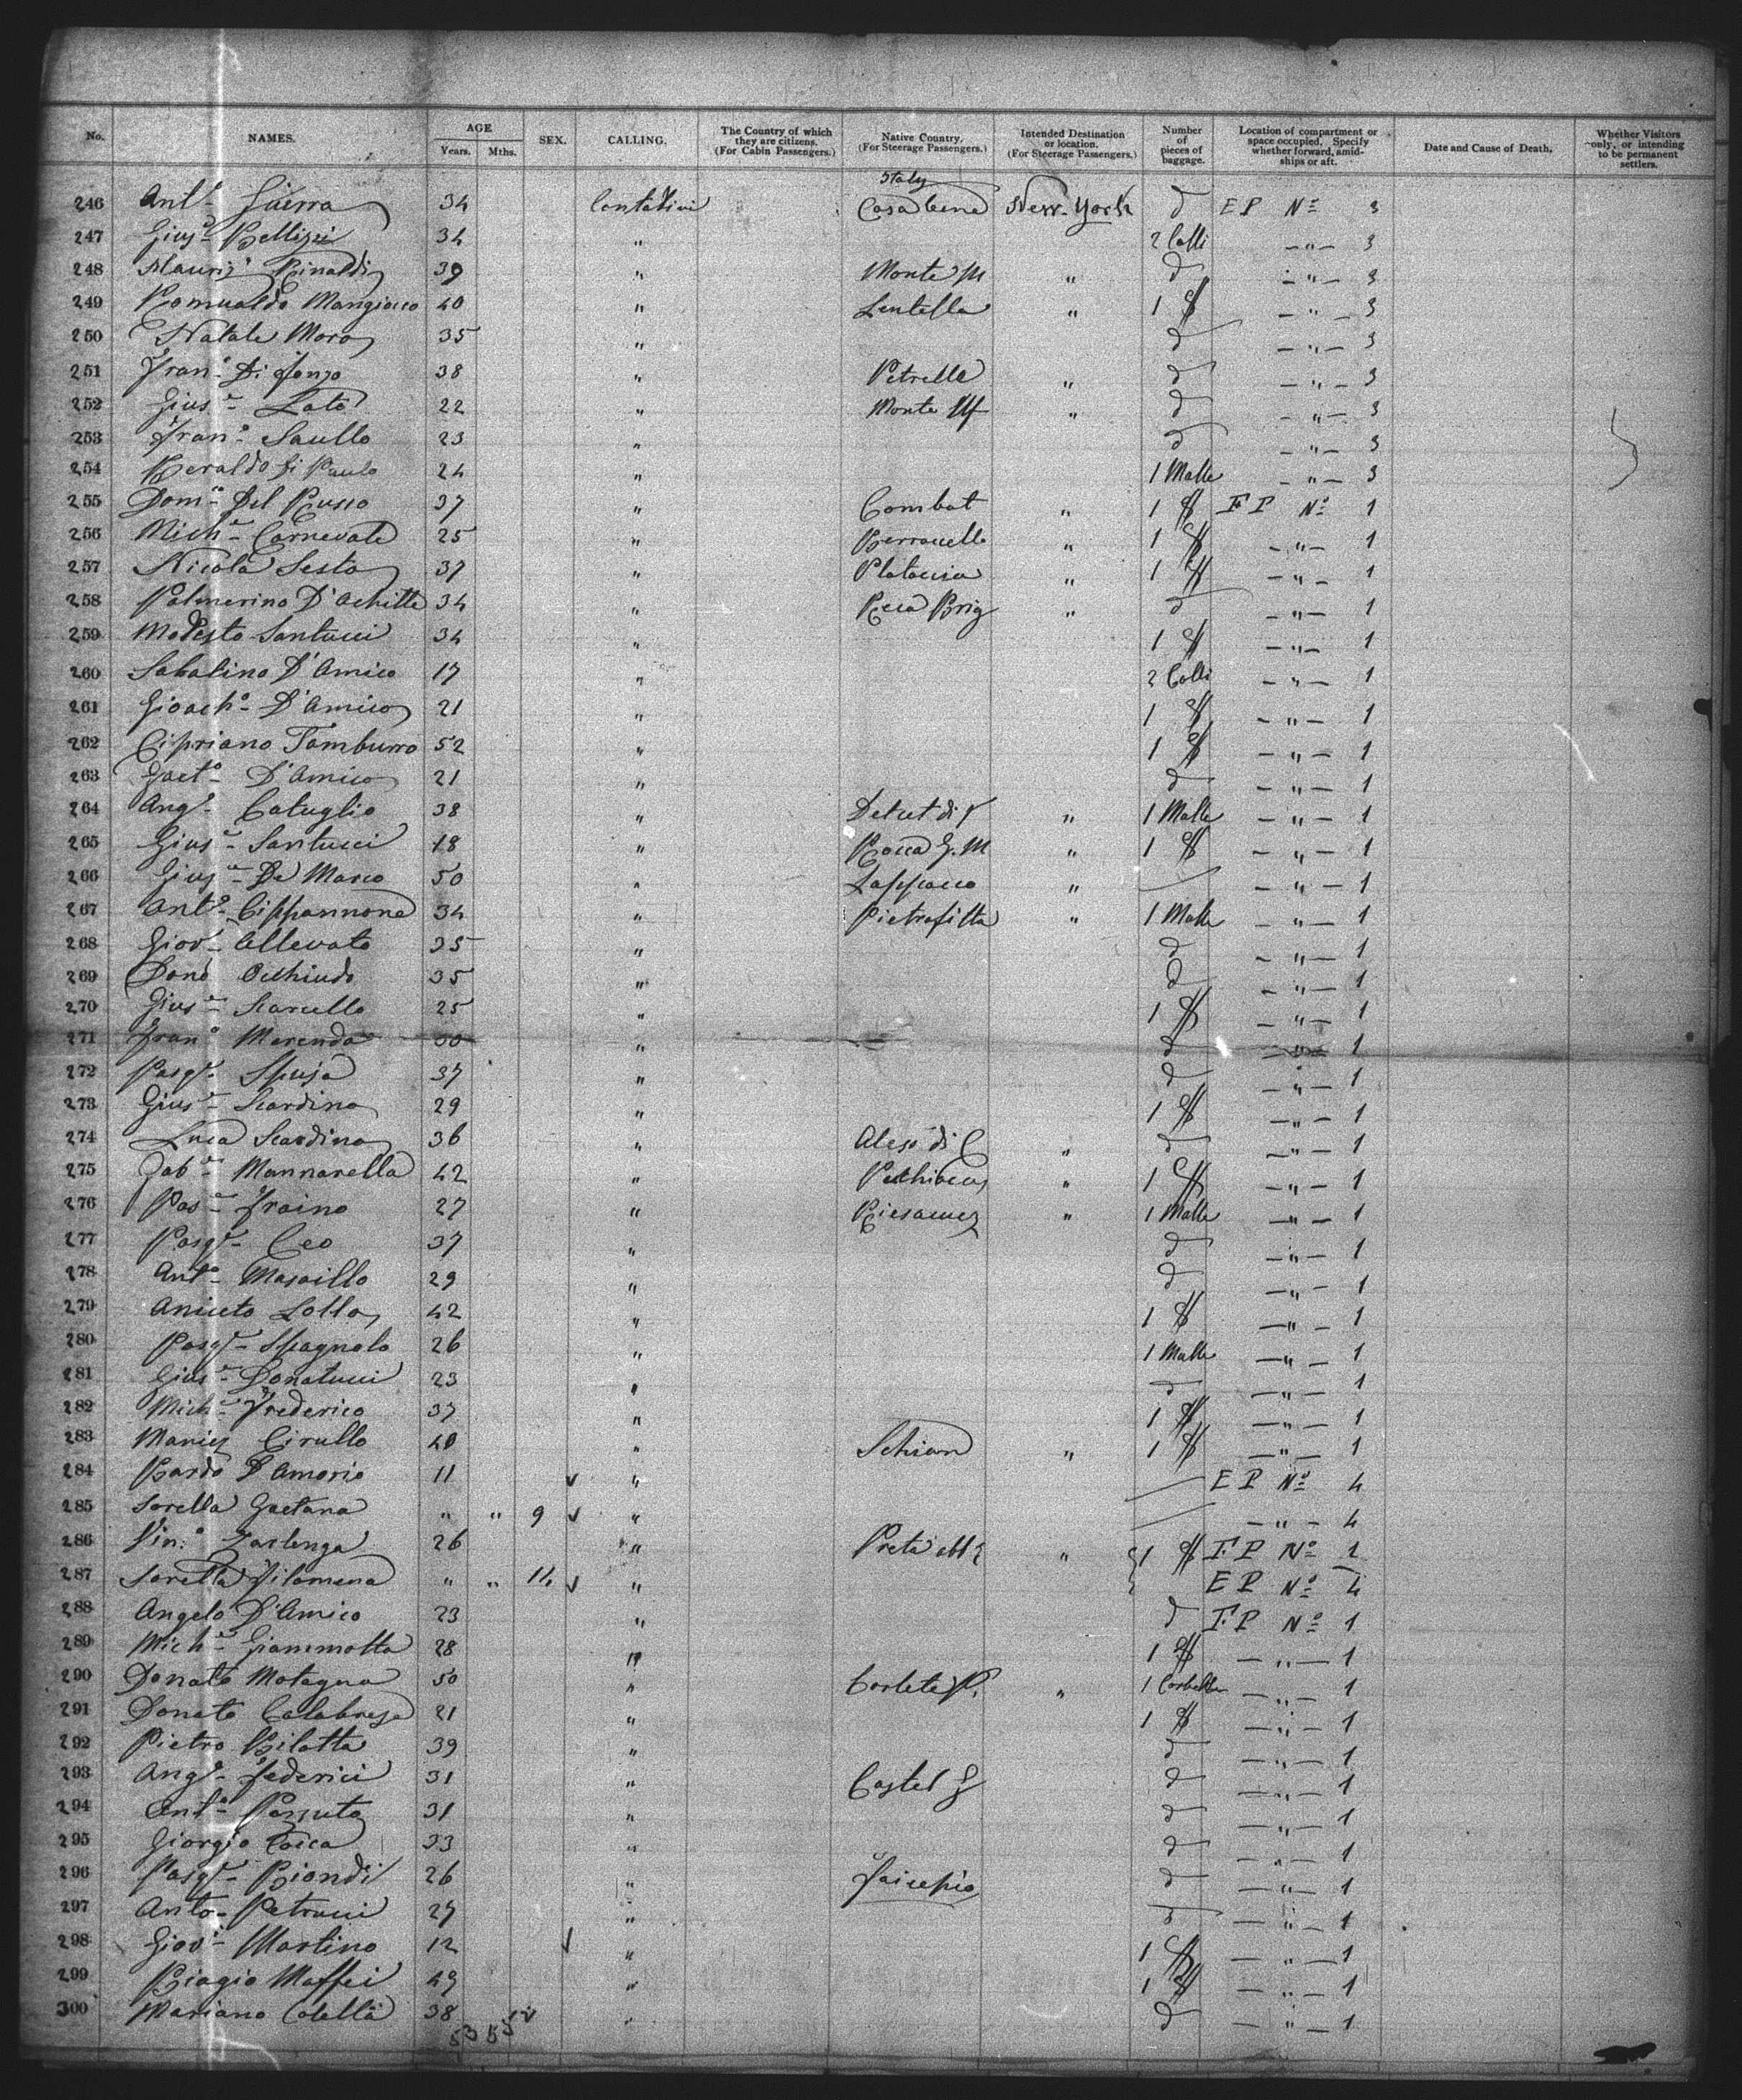 No. NAMES. AGE Years. Mths. SEX. CALLING. The Country of which they are citizens. (For Cabin Passengers.) Native Country, (For Steerage Passengers.) Intended Destination or location. (For Steerage Passengers.) Number of pieces of baggage. Location of compartment or space occupied. Specify whether forward, amidships or aft. Date and Cause of Death. Whether Visitors only, or intending to be permanent settlers.
Italy
246 Ant° Guerra 34 Contadini New-York d EP N° 3
247 Gius° Bellizzi 34 " 2 Colli -"- 3
248 Mauriz° Rinaldi 39 " Monte M " d -"- 3
249 Romualdo Mangiacco 40 " Lentella " 1 $ -"- 3
250 Natale Moro 35 " d -"- 3
251 Fran° Di Jonzo 38 " Petrella " d -"- 3
252 Gius° Lato 22 " Monte M " d -"- 3
253 Fran° Saullo 23 " d -"- 3
254 Beraldo Di Paulo 24 " 1 Malle -"- 3
255 Dom° Del Russo 37 " Combat " 1 $ FP N° 1
256 Mich° Carnevale 25 " " 1 $ -"- 1
257 Nicola Sesto 37 " " 1 $ -"- 1
258 Palmerino D'Achille 34 " " d -"- 1
259 Modesto Santucci 34 " 1 $ -"- 1
260 Sabatino D'Amico 17 " 2 Colli -"- 1
261 Gioach° D'Amico 21 " 1 $ -"- 1
262 Cipriano Tamburro 52 " 1 $ -"- 1
263 Gaet° D'Amico 21 " d -"- 1
264 Ang° Catuglio 38 " " 1 Malle -"- 1
265 Gius° Santucci 18 " Rocca G. M " 1 $ -"- 1
266 Gius° De Marco 50 " Lappacco " -"- 1
267 Ant° Cippannone 34 " Pietrafitta " 1 Malle -"- 1
268 Giov° Allevato 35 " d -"- 1
269 Dono Occhiudo 35 " d -"- 1
270 Gius° Scarcello 25 " 1 $ -"- 1
271 Fran° Merenda 30 " d -"- 1
272 Pasq° Spusa 37 " d -"- 1
273 Gius° Scardino 29 " 1 $ -"- 1
274 Luca Scardino 36 " Aless di C " d -"- 1
275 Gab° Mannarella 42 " " 1 $ -"- 1
276 Pas° Fraino 27 " " 1 Malle -"- 1
277 Pasq° Ceo 37 " d -"- 1
278 Ant° Masaillo 29 " d -"- 1
279 Aniceto Lolla 42 " 1 $ -"- 1
280 Pasq° Spagnolo 26 " 1 Malle -"- 1
281 Gius° Donatucci 23 " d -"- 1
282 Mich° Frederico 37 " 1 $ -"- 1
283 Cirullo 40 " Schian " 1 $ -"- 1
284 Bardo D'Amorio 11 v " EP N° 4
285 Sorella Gaetana " " 9 v " -"- 4
286 Vin° Zarlenga 26 " " 1 $ FP N° 1
287 Sorella Filomena " " 14 v " EP N° 4
288 Angelo D'Amico 23 " d FP N° 1
289 Mich° Giammotta 28 " 1 $ -"- 1
290 Donato Motagna 50 " Corleto P. " 1 Corbelle -"- 1
291 Donato Calabrese 21 " 1 $ -"- 1
292 Pietro Bilotta 39 " d -"- 1
293 Ang° Federici 31 " Castel G d -"- 1
294 Ant° Pazzuto 31 " d -"- 1
295 Giorgio Coica 33 " d -"- 1
296 Pasq° Biondi 26 " d -"- 1
297 Anto- Petrucci 27 " d -"- 1
298 Giov° Martino 12 v " 1 $ -"- 1
299 Biagio Maffei 49 " 1 $ -"- 1
300 Mariano Colella 38 " d -"- 1
53 55 v